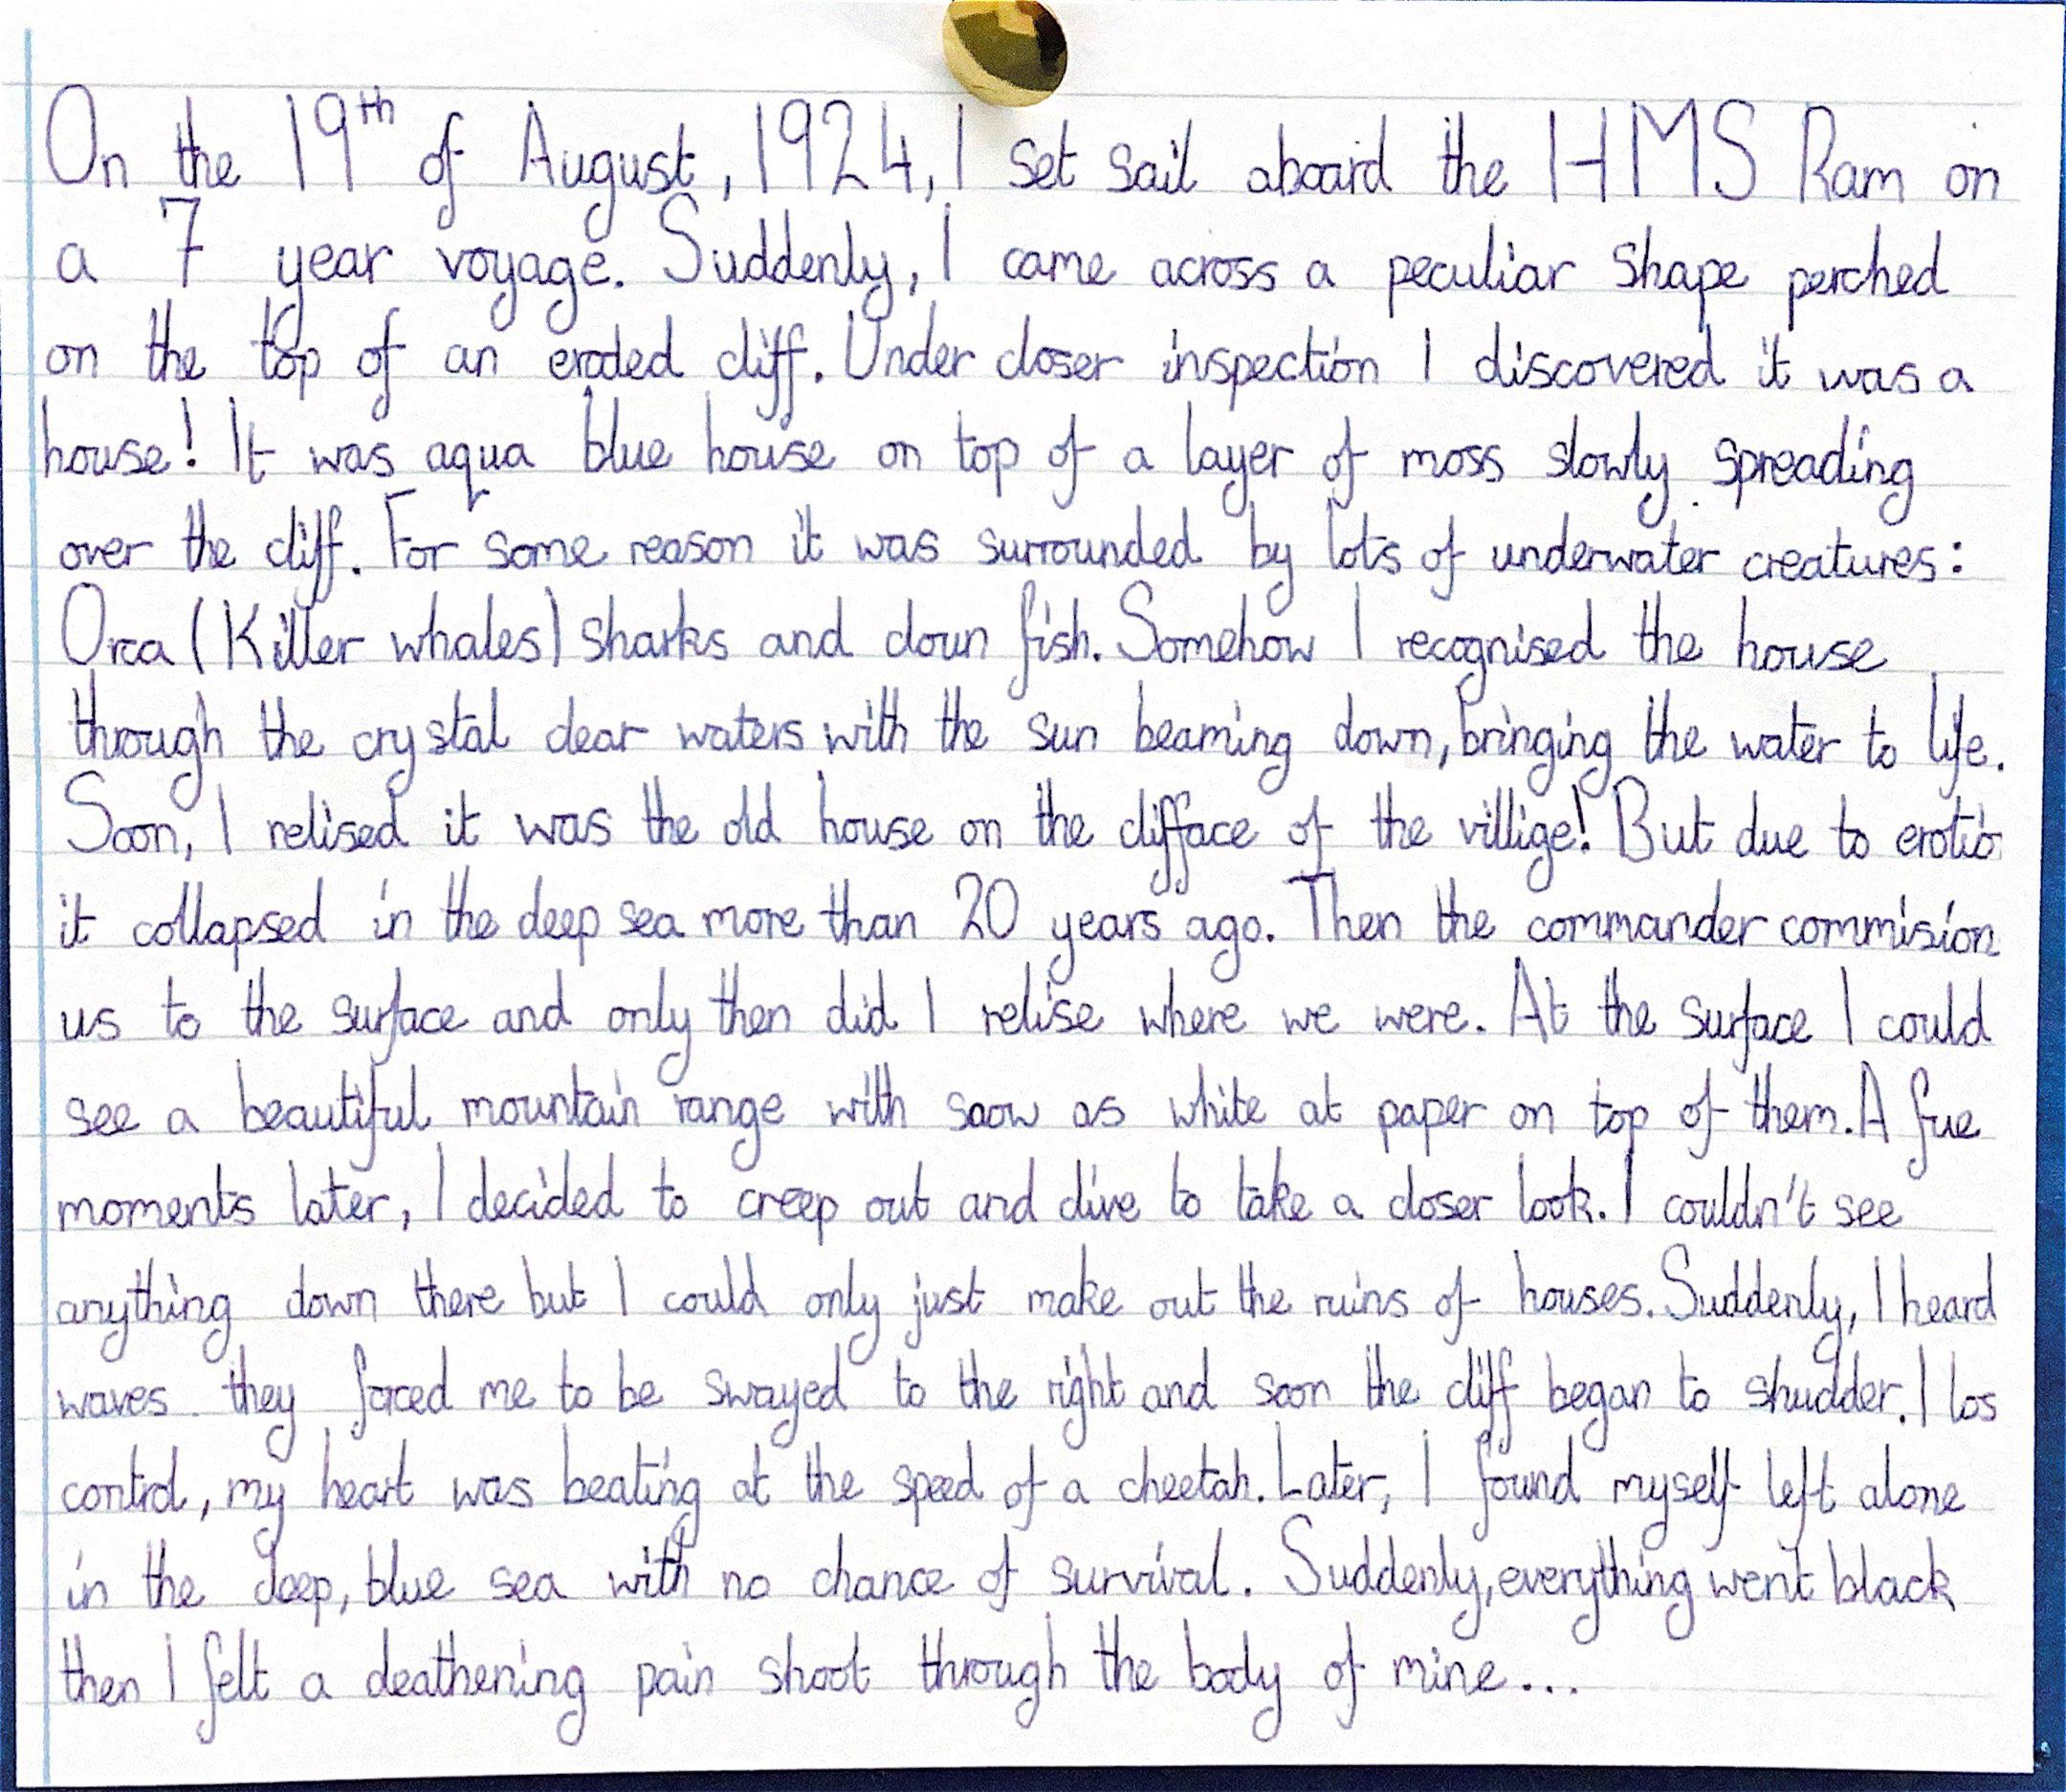 On the 19th of August, 1924, I set sail aboard the HMS Ram on
a 7 year voyage. Suddenly, I came across a peculiar shape perched
on the top of an eroded cliff. Under closer inspection I discovered it was a
house! It was aqua blue house on top of a layer of moss slowly spreading
over the cliff. For some reason it was surrounded by lots of underwater creatures:
Orca (Killer whales) sharks and cloun fish. Somehow I recognised the house
through the crystal clear waters with the sun beaming down, bringing the water to life.
Soon, I relised it was the old house on the cliffface of the villige! But due to erotio
it collapsed in the deep sea more than 20 years ago. Then the commander commision
us to the surface and only then did I relise where we were. At the surface I could
see a beautiful mountain range with snow as white at paper on top of them. A fue
moments later, I decided to creep out and dive to take a closer look. I couldn't see
anything down there but I could only just make out the ruins of houses. Suddenly, I heard
waves. they forced me to be swayed to the right and soon the cliff began to shudder. I los
control, my heart was beating at the speed of a cheetah. Later, I found myself left alone
in the deep, blue sea with no chance of survival. Suddenly, everything went black
then I felt a deathening pain shoot through the body of mine...